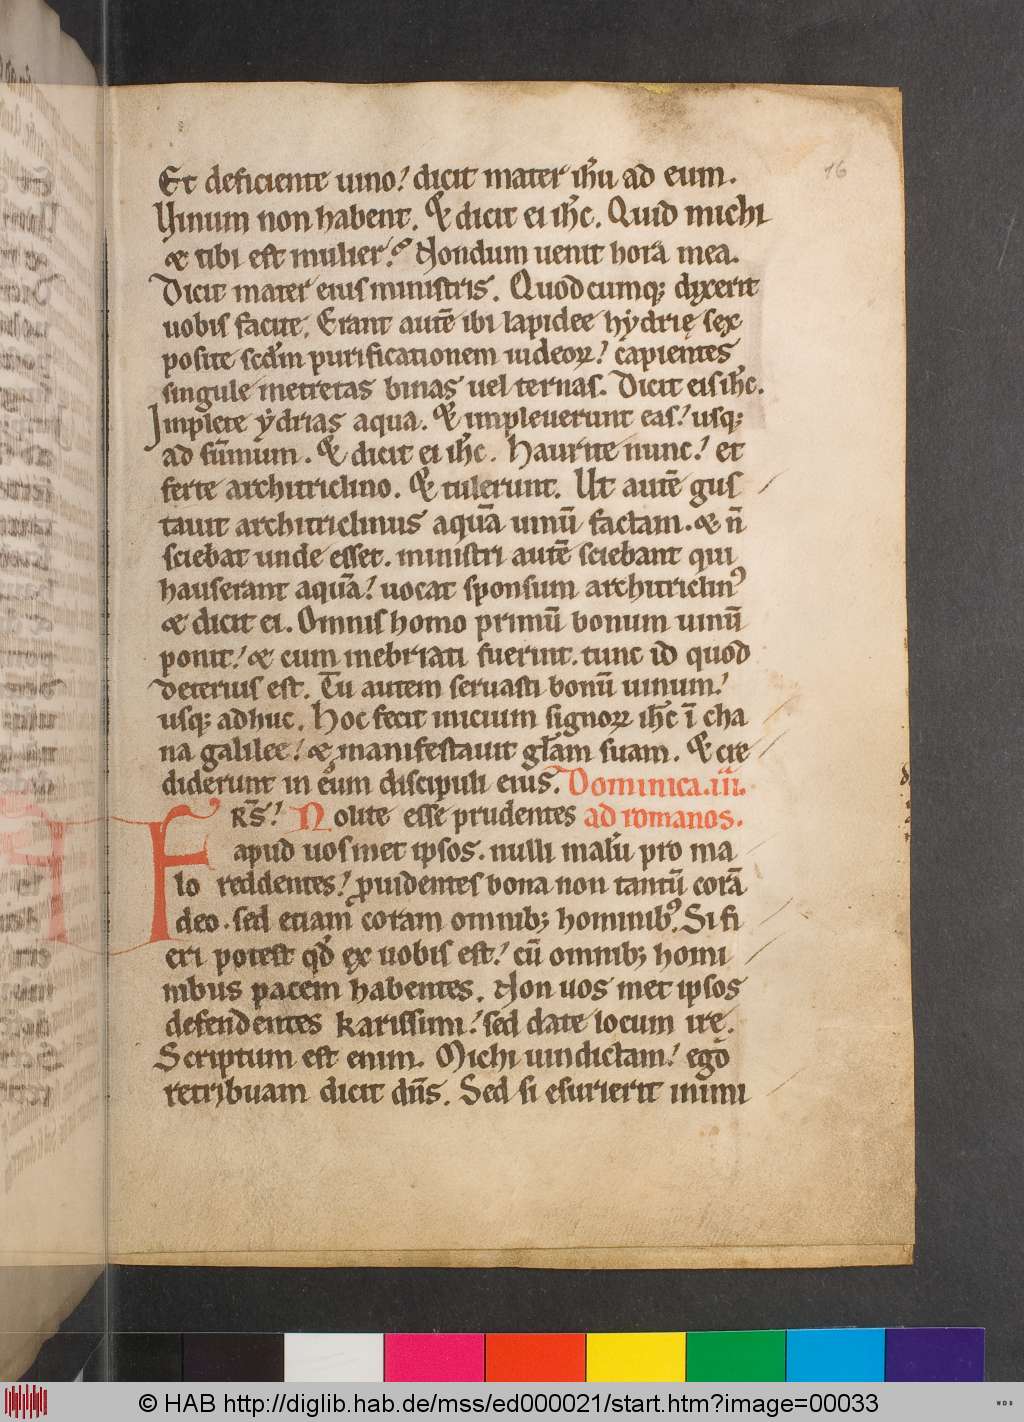 16
Et deficiente uino! dicit mater ih̄u ad eum.
Vinum non habent. & dicit ei ih̄c. Quid michi
& tibi est mulier? Nondum uenit hora mea.
Dicit mater eius ministris. Quodcumq; dixerit
uobis facite. Erant autē ibi lapidee hẏdrię sex
posite scdm̄ purificationem iudeoꝝ! capientes
singule metretas binas uel ternas. Dicit eis ih̄c.
Implete ẏdrias aqua. & impleuerunt eas! usq;
ad sūmum. & dicit ei ih̄c. Haurite nunc! et
ferte architriclino. & tulerunt. Ut autē gus
tauit architriclinus aquā uinū factam. & n̄
sciebat unde esset. ministri autē sciebant qui
hauserant aquā! uocat sponsum architriclin᾿
& dicit ei. Omnis homo primū bonum uinū
ponit! & cum inebriati fuerint. tunc id quod
deterius est. Tu autem seruasti bonū uinum!
usq; adhuc. Hoc fecit inicium signoꝝ ih̄c ī cha
na galilee! & manifestauit gl̄am suam. & cre
diderunt in eum discipuli eius. Dominica .iii.
FRS̄! Nolite esse prudentes ad romanos.
apud uosmet ipsos. nulli malū pro ma
lo reddentes! ꝓuidentes bona non tantū corā
deo. sed etiam coram omnib; hominib᾿. Si fi
eri potest qd̄ ex uobis est! cū omnib; homi
nibus pacem habentes. Non uos met ipsos
defendentes karissimi! sed date locum irę.
Scriptum est enim. Michi uindictam! ego
retribuam dicit dn̄s. Sed si esurierit inimi
© HAB http://diglib.hab.de/mss/ed000021/start.htm?image=00033